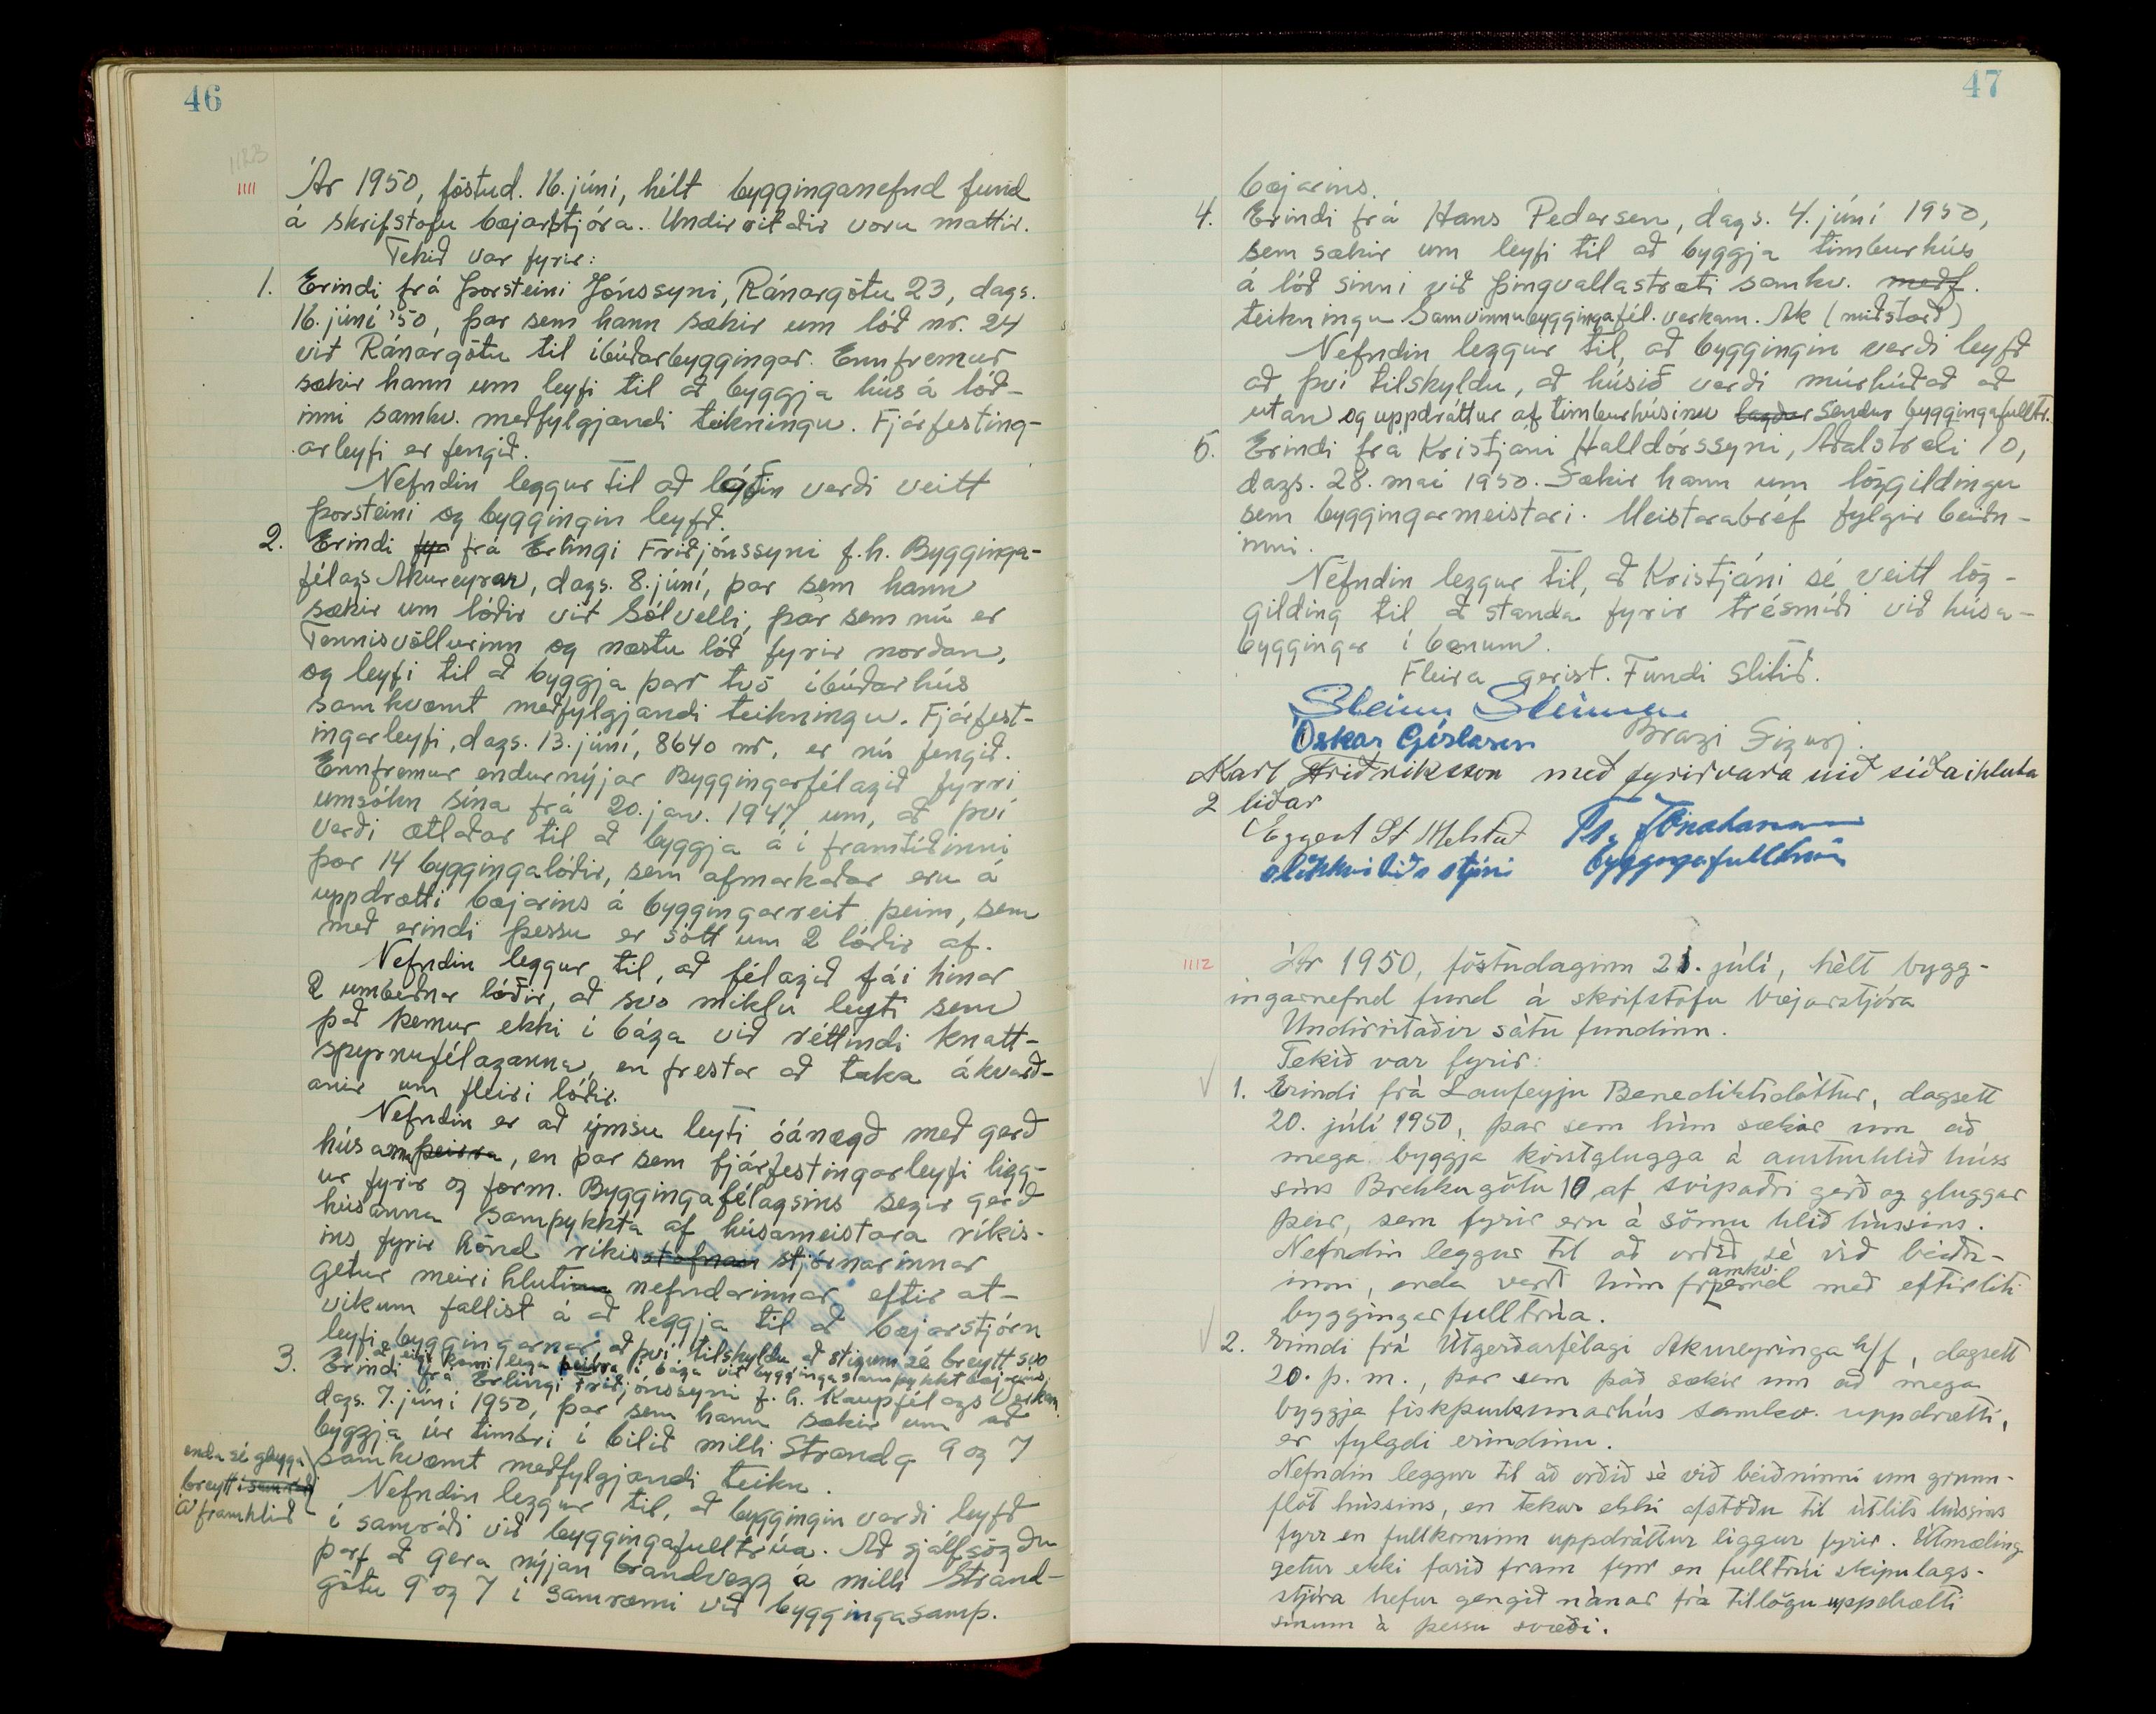 46
1111
Ár 1950, föstud. 16. júní, hélt bygginganefnd fund
á skrifstofu bæjarstjóra. Undirritaðir voru mættir.
Tekið var fyrir:
1. Erindi frá Þorsteini Jónssyni, Ránargötu 23, dags.
16. júní '50, þar sem hann sækir um lóð nr. 24
við Ránargötu til íbúðarbyggingar. Ennfremur
sækir hann um leyfi til að byggja hús á lóð-
inni samkv. meðfylgjandi teikningu. Fjárfesting-
arleyfi er fengið.
Nefndin leggur til að lóðin verði veitt
Þorsteini og byggingin leyfð.
2. Erindi fyr frá Erlingi Friðjónssyni f.h. Bygginga-
félags Akureyrar, dags. 8. júní, þar sem hann
sækir um lóðir við Sólvelli, þar sem nú er
Tennisvöllurinn og næstu lóð fyrir norðan,
og leyfi til að byggja þar tvö íbúðarhús
samkvæmt meðfylgjandi teikningu. Fjárfest-
ingarleyfi, dags. 13. júní, 8640 m³, er nú fengið.
Ennfremur endurnýjar Byggingarfélagið fyrri
umsókn sína frá 20. jan. 1947 um, að því
verði ætlaðar til að byggja á í framtíðinni
þær 14 byggingalóðir, sem afmarkaðar eru á
uppdrætti bæjarins á byggingarreit þeim, sem
með erindi þessu er sótt um 2 lóðir af.
Nefndin leggur til, að félagið fái hinar
2 umbeðnar lóðir, að svo miklu leyti sem
það kemur ekki í bága við réttindi knatt-
spyrnufélaganna, en frestar að taka ákvarð-
anir um fleiri lóðir.
Nefndin er að ýmsu leyti óánægð með gerð
húsanna þeirra, en þar sem fjárfestingarleyfi ligg-
ur fyrir og form. Byggingafélagsins segir gerð
húsanna samþykkta af húsameistara ríkis-
ins fyrir hönd ríkisstofnan stjórnarinnar
getur meirihlutinn nefndarinnar eftir at-
vikum fallist á að leggja til að bæjarstjórn
leyfi byggingarnar að því tilskyldu að stigum sé breytt svo
að eigi komi lega þeirra í bága við byggingasamþykkt bæjarins.
3. Erindi frá Erlingi Friðjónssyni f. h. Kaupfélags Verkam.
dags. 7. júní 1950, þar sem hann sækir um að
byggja úr timbri í bilið milli Strandg. 9 og 7
samkvæmt meðfylgjandi teikn.
enda sé glugga
breytt í samráði
á framhlið
Nefndin leggur til, að byggingin verði leyfð
í samráði við byggingafulltrúa. Að sjálfsögðu
þarf að gera nýjan brandvegg á milli Strand-
götu 9 og 7 í samræmi við byggingasamþ.
47
bæjarins.
4. Erindi frá Hans Pedersen, dags. 4. júní 1950,
sem sækir um leyfi til að byggja timburhús
á lóð sinni við Þingvallastræti samkv. meðf.
teikningu Samvinnubyggingafél. verkam. Ak (miðstærð)
Nefndin leggur til, að byggingin verði leyfð
að því tilskyldu, að húsið verði múrhúðað að
utan og uppdráttur af timburhúsinu lagður sendur byggingafulltr.
5. Erindi frá Kristjáni Halldórssyni, Aðalstræti 10,
dags. 28. maí 1950. Sækir hann um löggildingu
sem byggingarmeistari. Meistarabréf fylgir beiðn-
inni.
Nefndin leggur til, að Kristjáni sé veitt lög-
gilding til að standa fyrir trésmíði við húsa-
byggingar í bænum.
Fleira gerist. Fundi slitið.
Steinn Steinsen
Óskar Gíslason Bragi Sigurj.
Karl Friðriksson með fyrirvara við síðaihluta
2 liðar
Eggert St Melstað
slökkviliðsstjóri byggingafulltrúi
1112
Ár 1950, föstudaginn 21. júlí, hélt bygg-
ingarnefnd fund á skrifstofu bæjarstjóra
Undirritaðir sátu fundinn.
Tekið var fyrir:
1. Erindi frá Laufeyju Benediktsdóttur, dagsett
20. júlí 1950, þar sem hún sækir um að
mega byggja kvistglugga á austurhlið húss
síns Brekkugötu 10 af svipaðri gerð og gluggar
þeir, sem fyrir eru á sömu hlið hússins.
Nefndin leggur til að orðið sé við beiðn-
inni, enda verði hún framkv.
með eftirliti
byggingarfulltrúa.
2. Erindi frá Útgerðarfélagi Akureyringa h/f, dagsett
20. þ. m., þar sem það sækir um að mega
byggja fiskþurkunarhús samkv. uppdrætti,
er fylgdi erindinu.
Nefndin leggur til að orðið sé við beiðninni um grunn-
flöt hússins, en tekur ekki afstöðu til útlits hússins
fyrr en fullkominn uppdráttur liggur fyrir. Útmæling
getur ekki farið fram fyrr en fulltrúi skipulags-
stjóra hefur gengið nánar frá tillögu uppdrætti
sínum á þessu svæði.